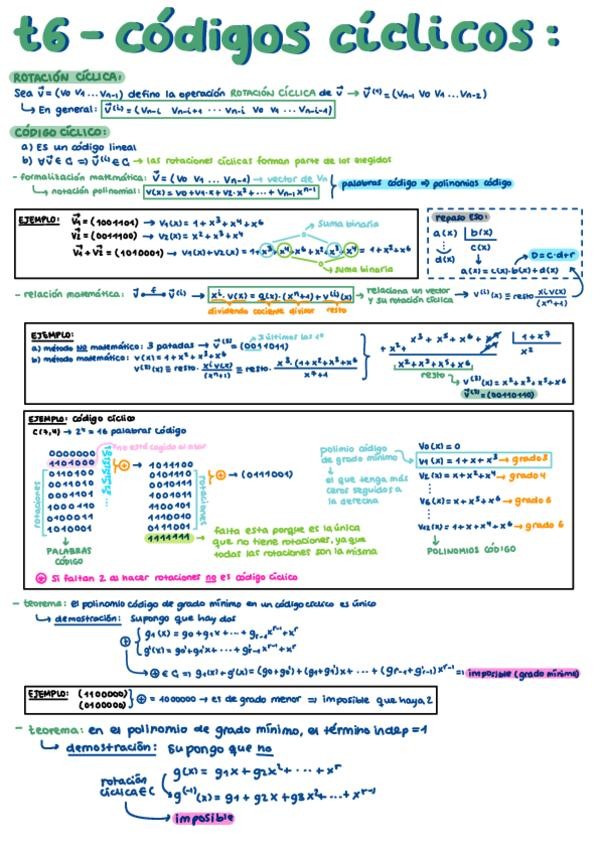 t6 - códigos cíclicos:
ROTACIÓN CÍCLICA:
Sea v⃗ = (v0 v1 ... vn-1) defino la operación ROTACIÓN CÍCLICA de v⃗ → v⃗⁽¹⁾ = (vn-1 v0 v1 ... vn-2)
↳ En general: v⃗⁽ⁱ⁾ = (vn-i vn-i+1 ... vn-1 v0 v1 ... vn-i-1)
CÓDIGO CÍCLICO:
a) ES un código lineal
b) ∀v⃗ ∈ C ⇒ v⃗⁽ⁱ⁾ ∈ C → las rotaciones cíclicas forman parte de los elegidos
- formalización matemática: v⃗ = (v0 v1 ... vn-1) → vector de vn
↳ notación polinomial: v(x) = v0 + v1·x + v2·x² + ... + vn-1 xⁿ⁻¹
palabras código ⇒ polinomios código
EJEMPLO: v⃗1 = (1001101) → v1(x) = 1 + x³ + x⁴ + x⁶
v⃗2 = (0011100) → v2(x) = x² + x³ + x⁴
v⃗1 + v⃗2 = (1010001) → v1(x) + v2(x) = 1 + x³ + x⁴ + x⁶ + x² + x³ + x⁴ = 1 + x² + x⁶
Suma binaria
Suma binaria
repaso ESO:
a(x) | b(x)
c(x)
d(x)
D = C·d + r
a(x) = c(x)·b(x) + d(x)
- relación matemática: v⃗ → v⃗⁽ⁱ⁾ → xⁱ·v(x) = q(x)·(xⁿ + 1) + v⁽ⁱ⁾(x) → relaciona un vector y su rotación cíclica → v⁽ⁱ⁾(x) ≡ resto xⁱ v(x) / (xⁿ + 1)
dividendo cociente divisor resto
EJEMPLO:
a) método NO matemático: 3 patadas → v⃗⁽³⁾ = (0011011)
3 últimos las 1º
b) método matemático: v(x) = 1 + x² + x³ + x⁶
v⁽³⁾(x) ≡ resto · xⁱ v(x) / (xⁿ + 1) ≡ resto · x³·(1 + x² + x³ + x⁶) / x⁷ + 1
x³ + x⁵ + x⁶ + x⁹ | 1 + x⁷
+ x² x²
x² + x³ + x⁵ + x⁶
resto → v⁽³⁾(x) = x² + x³ + x⁵ + x⁶
v⃗⁽³⁾ = (00110110)
EJEMPLO: código cíclico
C(7,4) → 2⁴ = 16 palabras código
no está cogido al azar
0000000
1101000
0110100
0011010
0001101
1000110
0100011
1010001
rotaciones
PALABRAS CÓDIGO
⊕ → 1011100
0101110
0010111
1001011
1100101
1110010
0111001
1111111
rotaciones
⊕ → (0111001)
falta esta porque es la única
que no tiene rotaciones, ya que
todas las rotaciones son la misma
polimio código
de grado mínimo
↓
el que tenga más
ceros seguidos a
la derecha
v0(x) = 0
v1(x) = 1 + x + x³ → grado 3
v2(x) = x + x² + x⁴ → grado 4
v6(x) = x + x⁵ + x⁶ → grado 6
v12(x) = 1 + x + x⁴ + x⁶ → grado 6
POLINOMIOS CÓDIGO
⊕ Si faltan 2 al hacer rotaciones no es código cíclico
- teorema: el polinomio código de grado mínimo en un código cíclico es único
↳ demostración: Supongo que hay dos
⊕ { g1(x) = g0 + g1x + ... + gr-1 xʳ⁻¹ + xʳ
g'(x) = g0' + g1'x + ... + g'r-1 xʳ⁻¹ + xʳ
→ ⊕ ∈ C ⇒ g1(x) + g'(x) = (g0 + g0') + (g1 + g1')x + ... + (gr-1 + g'r-1) xʳ⁻¹ ⇒ imposible (grado mínimo)
EJEMPLO: (1100000)
(0100000) } ⊕ = 1000000 → es de grado menor ⇒ imposible que haya 2
- teorema: en el polinomio de grado mínimo, el término indep = 1
↳ demostración: Supongo que no
rotación
cíclica ∈ C
g(x) = g1x + g2x² + ... + xʳ
g⁽⁻¹⁾(x) = g1 + g2x + g3x² + ... + xʳ⁻¹
imposible